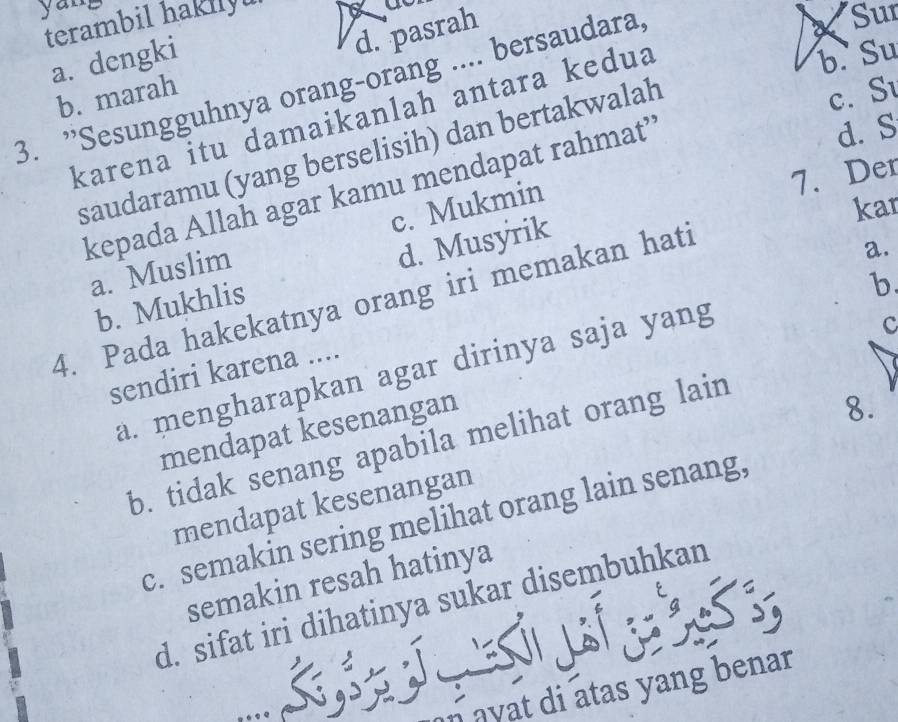 terambil
a. dengki
d. pasrah
b. marah
3. "Sesungguhnya orang-orang .... bersaudara,
karena itu damaikanlah antara kedua
saudaramu (yang berselisih) dan bertakwalah
kepada Allah agar kamu mendapat rahmat"
a. Muslim
c. Mukmin
b. Mukhlis
d. Musyrik
4. Pada hakekatnya orang iri memakan hati
sendiri karena ....
a. mengharapkan agar dirinya saja yang
mendapat kesenangan
b. tidak senang apabila melihat orang lain
mendapat kesenangan
c. semakin sering melihat orang lain senang,
semakin resah hatinya
d. sifat iri dihatinya sukar disembuhkan
وَدَّ كَثِيْرٌ مِّنْ أَهْلِ الْكِتٰبِ لَوْ يَرُدُّوْنَكُمْ ....
ayat di atas yang benar
b.
c.
d.
7.
a.
b.
c
8.